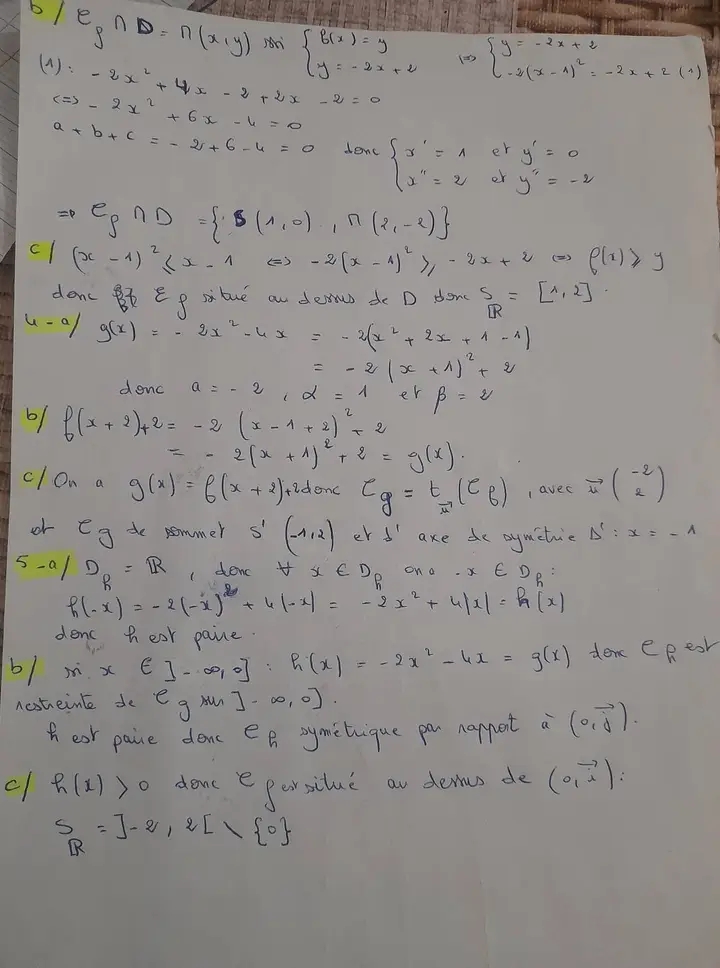 b/ ℰf ∩ D = M(x,y) ssi { f(x) = y ⟺ { y = -2x + 2
{ y = -2x + 2 { -2(x-1)² = -2x + 2 (1)
(1) : -2x² + 4x - 2 + 2x - 2 = 0
⟺ -2x² + 6x - 4 = 0
a + b + c = -2 + 6 - 4 = 0 donc { x' = 1 et y' = 0
{ x'' = 2 et y'' = -2
⟹ ℰf ∩ D = { S(1,0), M(2,-2)}
c/ (x-1)² ⩽ x - 1 ⟺ -2(x-1)² ⩾ -2x + 2 ⟺ f(x) ⩾ y
donc ℰf situé au dessus de D donc S_ℝ = [1,2].
4-a/ g(x) = -2x² - 4x = -2(x² + 2x + 1 - 1)
= -2(x+1)² + 2
donc a = -2, α = 1 et β = 2
b/ f(x+2)+2 = -2 (x - 1 + 2)² + 2
= -2(x+1)² + 2 = g(x).
c/ On a g(x) = f(x+2)+2 donc ℰg = t_u⃗ (ℰf), avec u⃗ (-2
2)
et ℰg de sommet S' (-1,2) et d' axe de symétrie Δ' : x = -1
5-a/ Dh = ℝ, donc ∀ x ∈ Dh on a -x ∈ Dh :
h(-x) = -2(-x)² + 4|-x| = -2x² + 4|x| = h(x)
donc h est paire.
b/ si x ∈ ]-∞,0] : h(x) = -2x² - 4x = g(x) donc ℰh est
restreinte de ℰg sur ]-∞,0].
h est paire donc ℰh symétrique par rapport à (0,j⃗).
c/ h(x) > 0 donc ℰh est situé au dessus de (0,i⃗) :
S_ℝ = ]-2, 2[ \ {0}